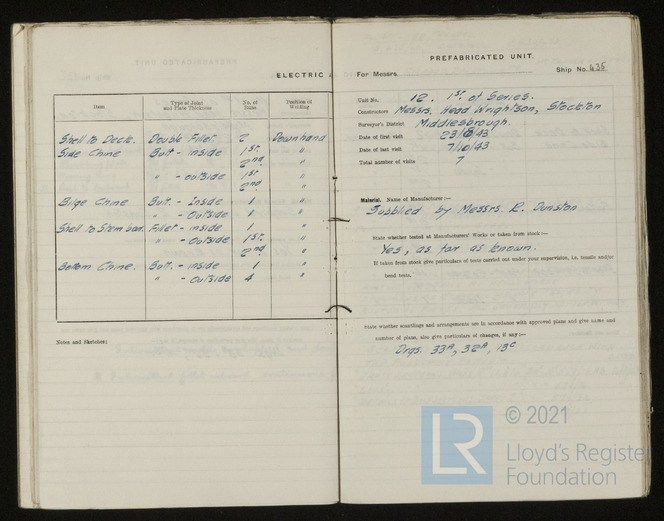 ELECTRIC
Item Type of Joint and Plate Thickness No. of Runs Position of Writing
Shell to Deck. Double Fillet 2 Downhand
Side Chine Butt - inside 1st. "
2nd "
" - outside 1st "
2nd "
Bilge Chine Butt. - Inside 1 "
" - Outside 1 "
Shell to Stem bar. Fillet - inside 1 "
" - Outside 1st. "
2nd "
Bottom Chine. Butt. - inside 1 "
" - outside 4 "
Notes and Sketches:
PREFABRICATED UNIT.
For Messrs. Ship No. 435
Unit No. 12. 1st of Series.
Constructors Messrs. Head Wrightson, Stockton
Surveyor's District Middlesbrough.
Date of first visit 23/8/43
Date of last visit 7/10/43
Total number of visits 7
Material. Name of Manufacturer:—
Supplied by Messrs. R. Dunston
State whether tested at Manufacturers' Works or taken from stock:—
Yes, as far as known.
If taken from stock give particulars of tests carried out under your supervision, i.e. tensile and/or
bend tests.
State whether scantlings and arrangements are in accordance with approved plans and give names and
number of plans, also give particulars of changes, if any:—
Drgs. 33A, 32A, 13C
LR © 2021
Lloyd's Register
Foundation